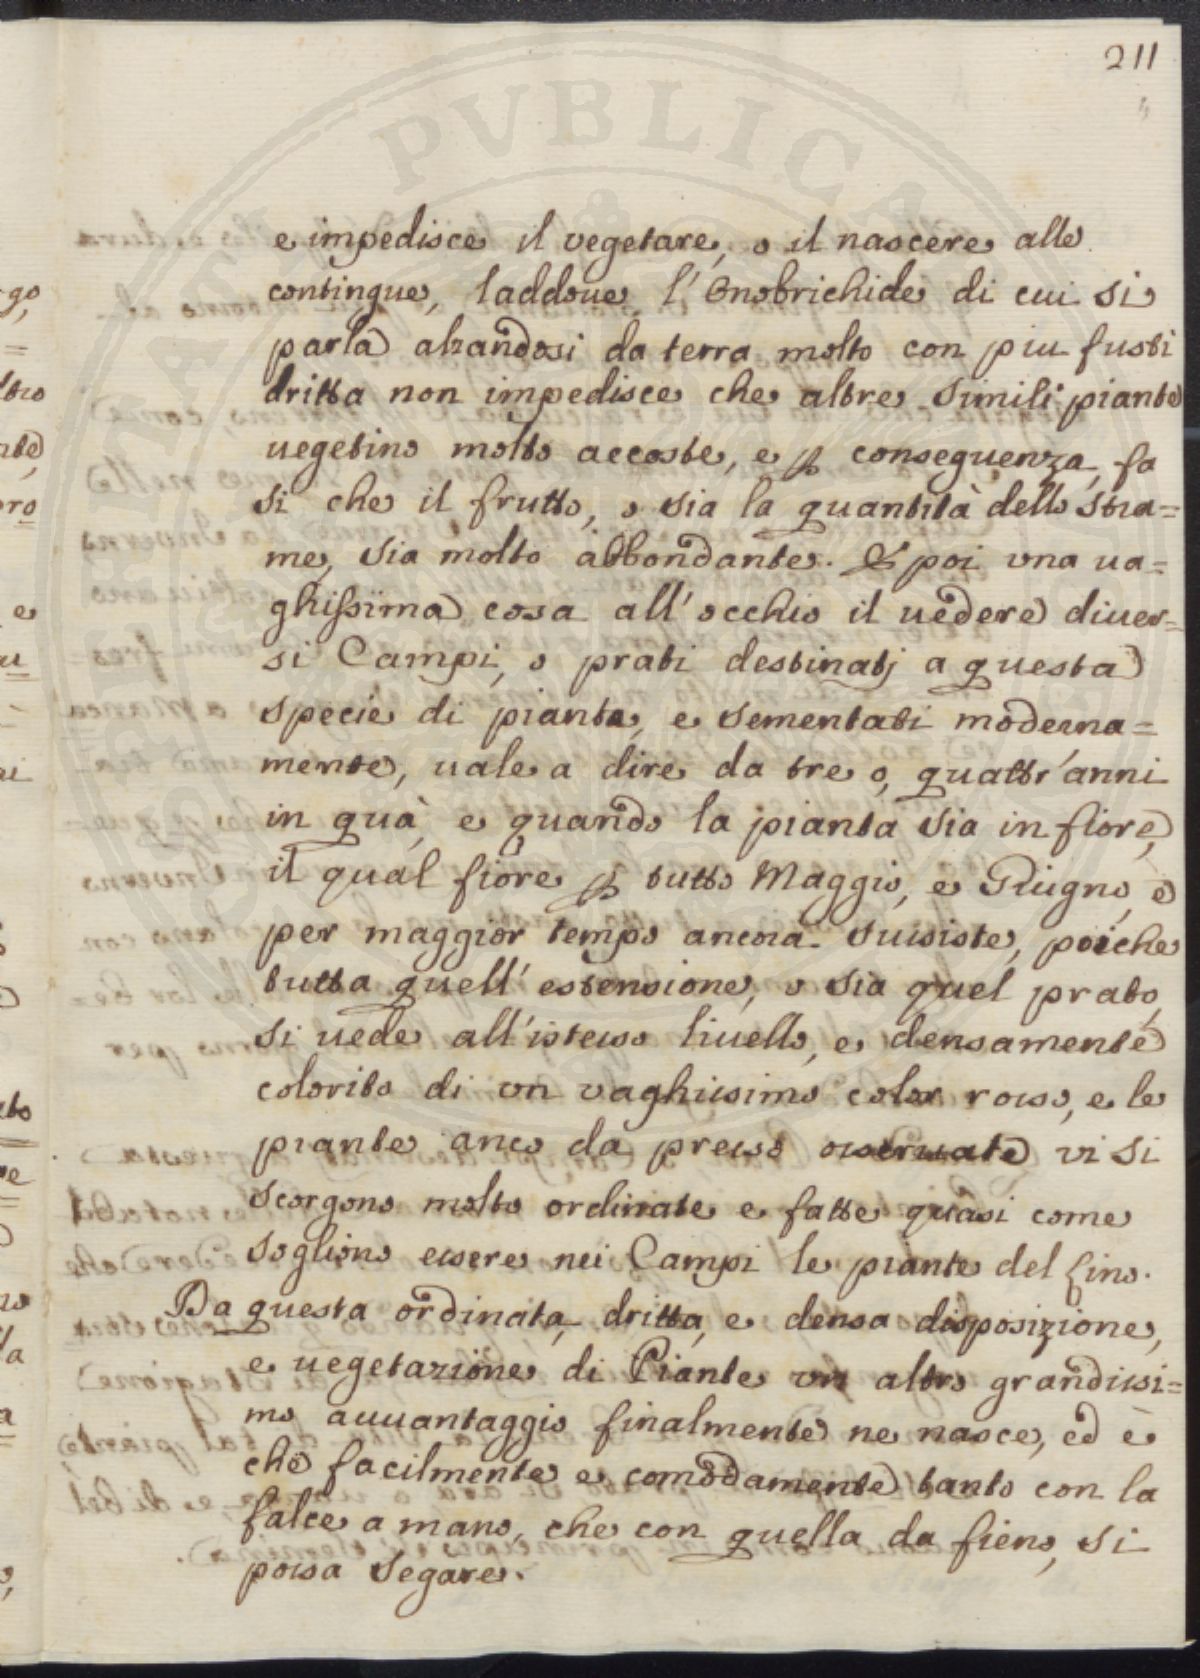 211
e impedisce il vegetare, o il nascere alle
contingue, laddoue l'Onobrichide di cui si
parla alzandosi da terra molto con piu fusti
dritta non impedisce che altre simili piante
uegetino molto accoste, e ꝑ conseguenza fa
si che il frutto, o sia la quantità dello stra=
me, sia molto abbondante. È poi una ua=
ghissima cosa all'occhio il uedere diuer=
si Campi, o prati destinatj a questa
specie di pianta, e sementati moderna=
mente, uale a dire da tre o, quattr'anni
in quà, e quando la pianta sia in fiore,
il qual fiore ꝑ tutto Maggio, e Giugno, e
per maggior tempo ancora sussiste, poiche
tutta quell'estensione, o sia quel prato,
si uede all'istesso liuello, e densamente
colorito di un vaghissimo color rosso, e le
piante anco da presso osseruate vi si
scorgono molto ordinate e fatte quasi come
sogliono essere nei Campi le piante del lino.
Da questa ordinata, dritta, e densa disposizione,
e uegetazione di Piante un altro grandissi=
mo auuantaggio finalmente ne nasce, ed è
che facilmente e comodamente tanto con la
falce a mano, che con quella da fieno, si
possa segare.
PVBLICA